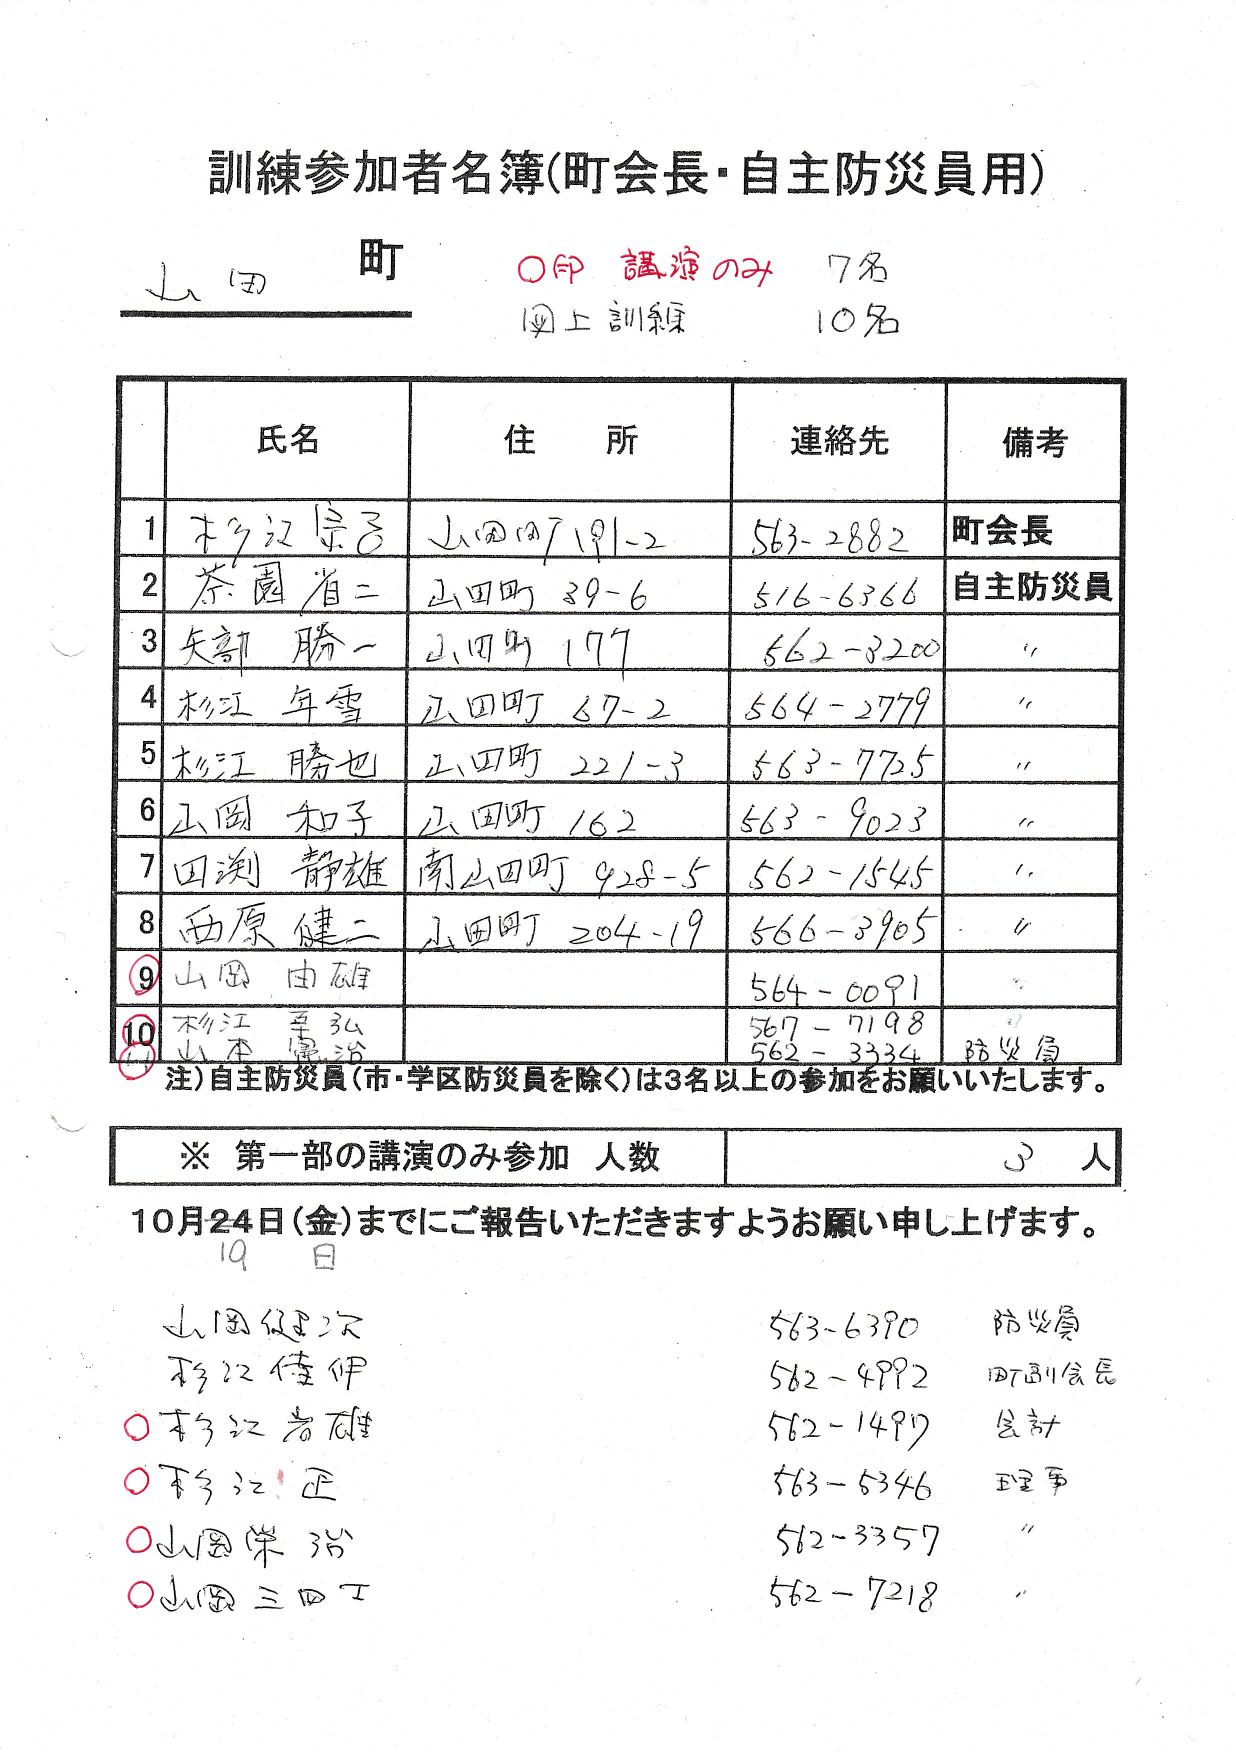 訓練参加者名簿(町会長・自主防災員用)
山田 町 ○印 講演のみ 7名
図上訓練 10名
氏名 住 所 連絡先 備考
1 杉江 山田町191-2 563-2882 町会長
2 茶園 省二 山田町 39-6 516-6366 自主防災員
3 矢部 勝一 山田町 177 562-3200 〃
4 杉江 年雪 山田町 67-2 564-2779 〃
5 杉江 勝也 山田町 221-3 563-7725 〃
6 山岡 和子 山田町 162 563-9023 〃
7 田渕 静雄 南山田町 928-5 562-1545 〃
8 西原 健二 山田町 204-19 566-3905 〃
9 山岡 由雄 564-0091 〃
10 杉江 弘 567-7198 〃
11 山本 憲治 562-3334 防災員
注)自主防災員(市・学区防災員を除く)は3名以上の参加をお願いいたします。
※ 第一部の講演のみ参加 人数 3 人
10月24日(金)までにご報告いただきますようお願い申し上げます。
19 日
山岡健次 563-6390 防災員
杉江 562-4992 町副会長
○杉江 雄 562-1497 会計
○杉江 正 563-5346 理事
○山岡栄治 562-3357 〃
○山岡三四 562-7218 〃